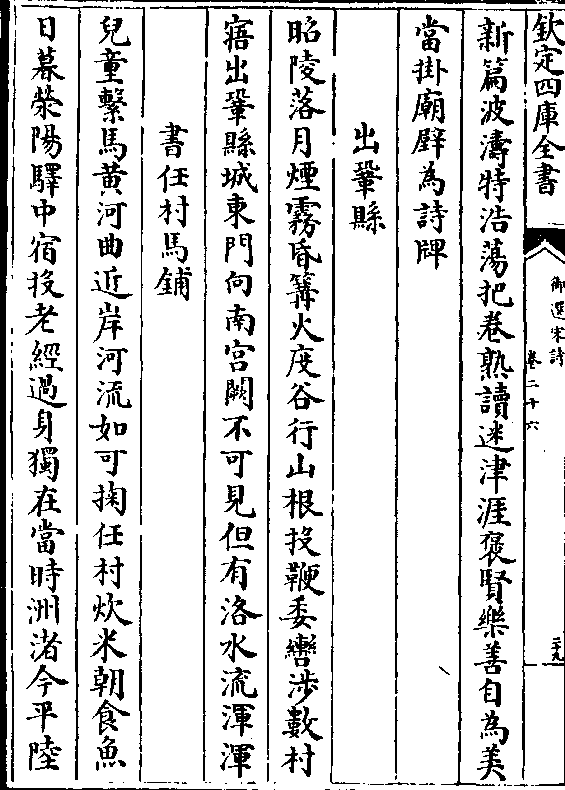 欽定四庫全書
御選宋詩
卷二十六
二十九
新篇波濤特浩蕩把卷熟讀迷津涯褒賢樂善自為美
當掛廟壁為詩牌
出鞏縣
昭陵落月煙霧昏篝火度谷行山根投鞭委轡涉數村
寤出鞏縣城東門向南宫闕不可見但有洛水流渾渾
書任村馬鋪
兒童繫馬黄河曲近岸河流如可掬任村炊米朝食魚
日暮滎陽驛中宿投老經過身獨在當時洲渚今平陸